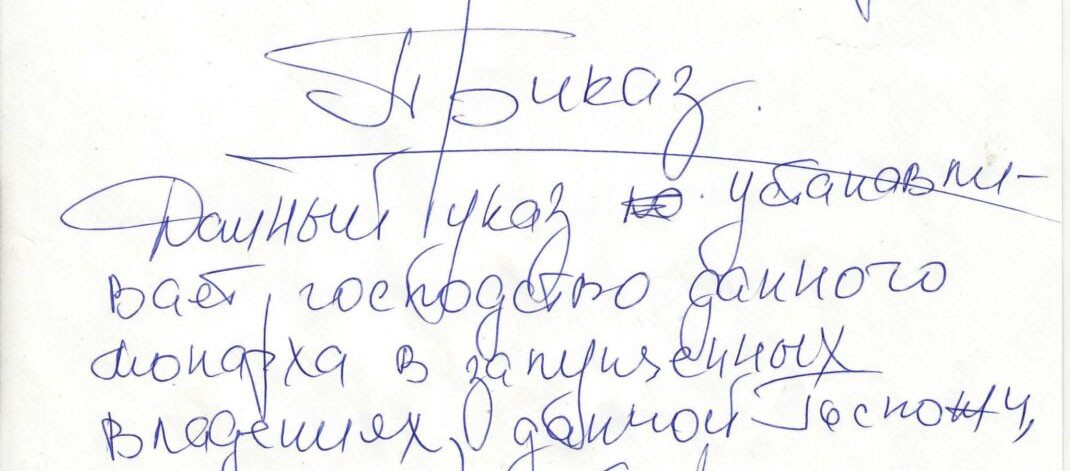 Приказ.
Данный указ устанавли-
вает господство данного
монарха в запущенных
владениях, данной Госпожи,